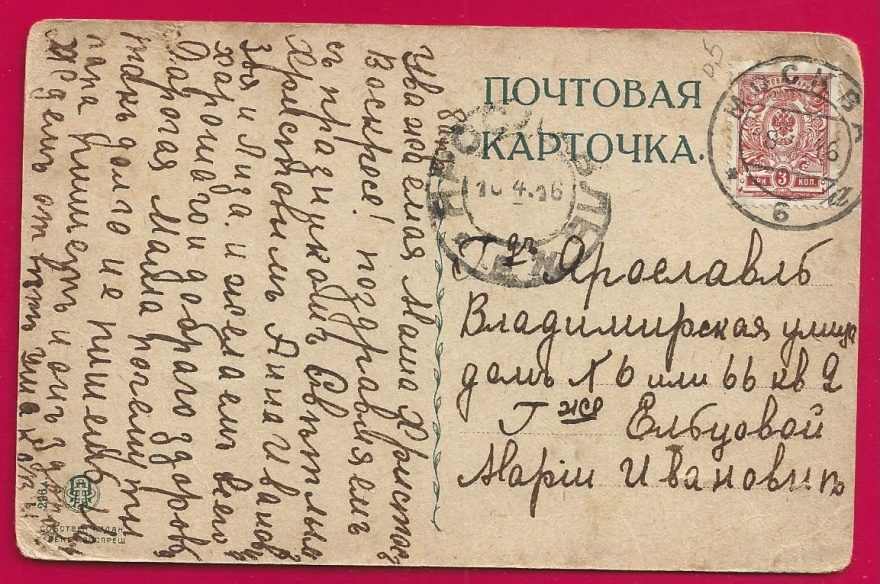 ПОЧТОВАЯ
КАРТОЧКА.
МОСКВА
6
3 КОП.
10.4.16
Гдъ Ярославль
Владимирская улица
домъ № 6 или 66 кв 2
Гже Елбуовой
Маріи Ивановнъ
Уважаемая Маша Христосъ
Воскросе! поздравляемъ
съ празникомъ Свѣтлымъ
Христовимъ Анна Ивановна
Зоя и Лиза. и желаемъ всего
харошаго и добраго здоровя
Дорогая Маша почему ты
такъ долго не пишешь
папа пишетъ и онъ
Ждемъ отъ